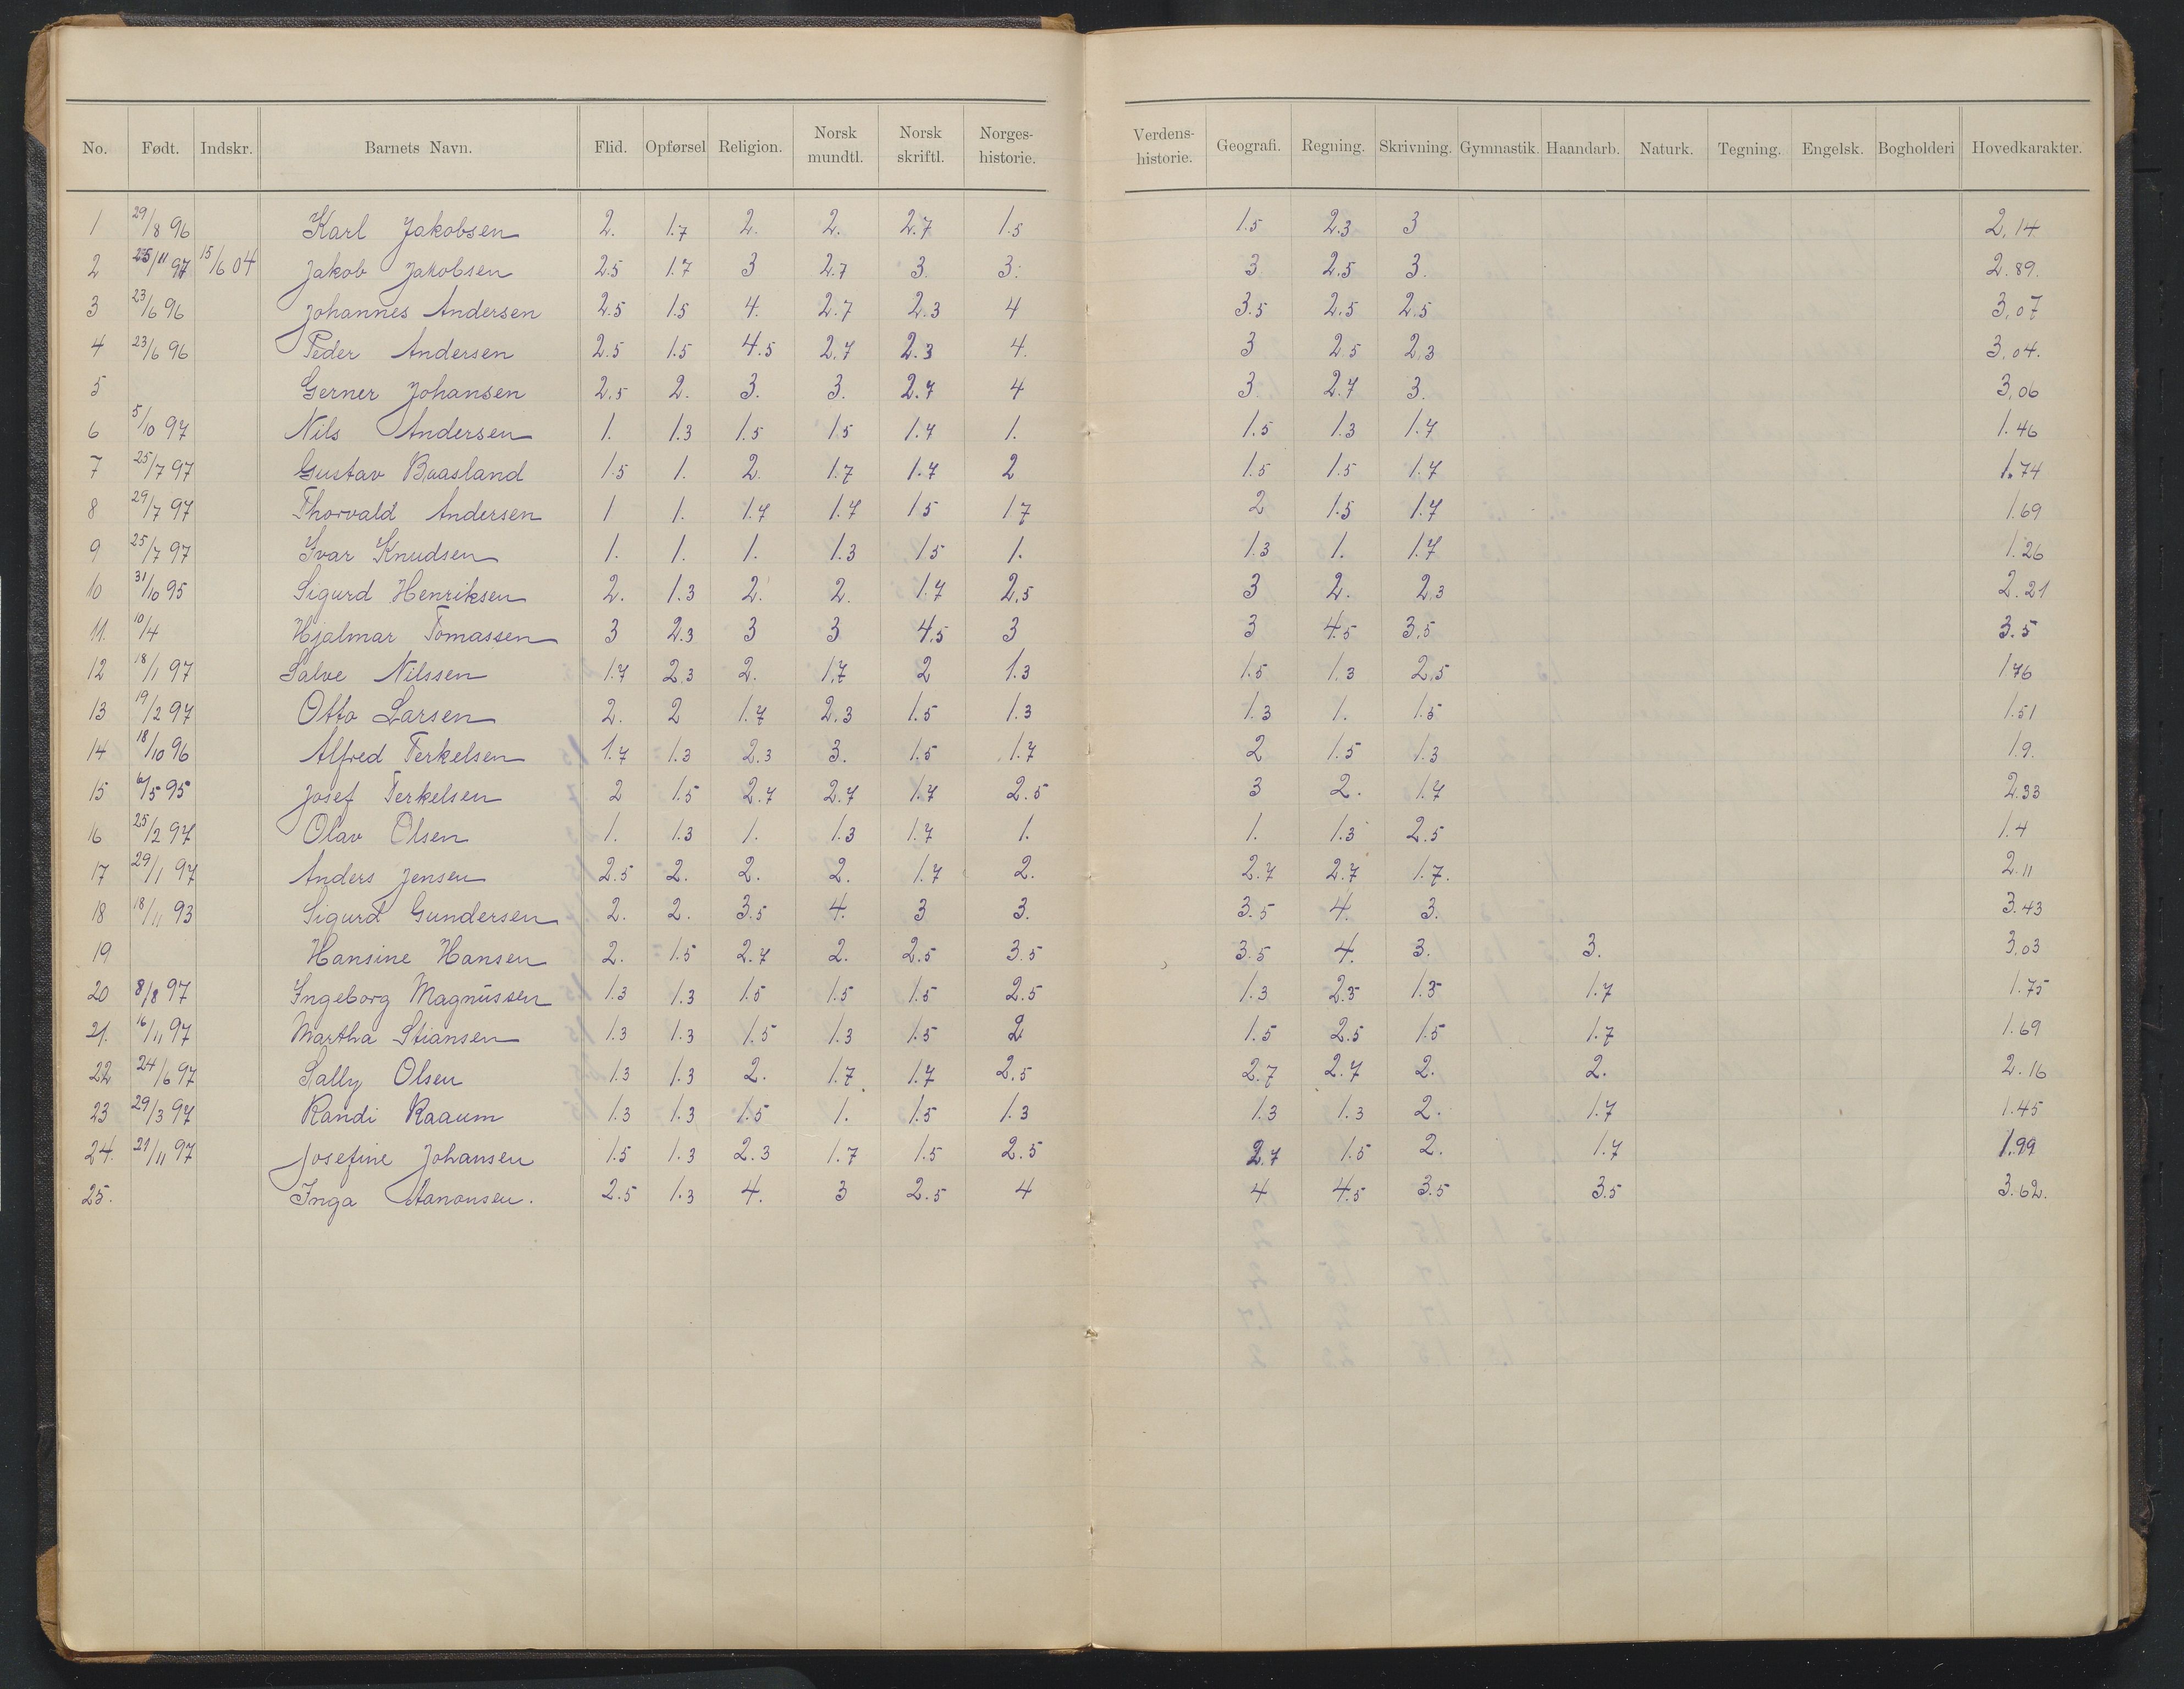 No. Født. Indskr. Barnets Navn. Flid. Opførsel Religion. Norsk mundtl. Norsk skriftl. Norges-historie. Verdens-historie. Geografi. Regning. Skrivning. Gymnastik. Haandarb. Naturk. Tegning. Engelsk. Bogholderi Hovedkarakter.
1 29/8 96 Karl Jakobsen 2. 1.7 2. 2. 2.7 1.5 1.5 2.3 3 2.14
2 25/11 97 15/6 04 Jakob Jakobsen 2.5 1.7 3 2.7 3. 3. 3 2.5 3. 2.89.
3 23/6 96 Johannes Andersen 2.5 1.5 4. 2.7 2.3 4 3.5 2.5 2.5 3.07
4 23/6 96 Peder Andersen 2.5 1.5 4.5 2.7 2.3 4. 3 2.5 2.3 3.04.
5 Gerner Johansen 2.5 2. 3. 3. 2.7 4 3 2.7 3. 3.06
6 5/10 97 Nils Andersen 1. 1.3 1.5 1.5 1.7 1. 1.5 1.3 1.7 1.46
7 25/7 97 Gustav Baasland 1.5 1. 2. 1.7 1.7 2 1.5 1.5 1.7 1.74
8 29/7 97 Thorvald Andersen 1 1. 1.7 1.7 1.5 1.7 2 1.5 1.7 1.69
9 25/7 97 Ivar Knudsen 1. 1. 1. 1.3 1.5 1. 1.3 1. 1.7 1.26
10 31/10 95 Sigurd Henriksen 2. 1.3 2. 2. 1.7 2.5 3 2. 2.3 2.21
11. 10/4 Hjalmar Tomassen 3 2.3 3 3 4.5 3 3 4.5 3.5 3.5
12 18/1 97 Salve Nilssen 1.7 2.3 2. 1.7 2 1.3 1.5 1.3 2.5 1.76
13 19/2 97 Otto Larsen 2. 2 1.7 2.3 1.5 1.3 1.3 1. 1.5 1.51
14 18/10 96 Alfred Terkelsen 1.7 1.3 2.3 3. 1.5 1.7 2 1.5 1.3 1.9.
15 6/5 95 Josef Terkelsen 2 1.5 2.7 2.7 1.7 2.5 3 2. 1.7 2.33
16 25/2 97 Olav Olsen 1. 1.3 1. 1.3 1.7 1. 1. 1.3 2.5 1.4
17 29/1 97 Anders Jensen 2.5 2. 2. 2. 1.7 2. 2.7 2.7 1.7. 2.11
18 18/11 93 Sigurd Gundersen 2. 2. 3.5 4. 3 3. 3.5 4. 3. 3.43
19 Hansine Hansen 2. 1.5 2.7 2. 2.5 3.5 3.5 4. 3. 3. 3.03
20 8/8 97 Ingeborg Magnussen 1.3 1.3 1.5 1.5 1.5 2.5 1.3 2.3 1.5 1.7 1.75
21. 16/11 97 Martha Stiansen 1.3 1.3 1.5 1.3 1.5 2 1.5 2.5 1.5 1.7 1.69
22 24/6 97 Sally Olsen 1.3 1.3 2. 1.7 1.7 2.5 2.7 2.7 2. 2. 2.16
23 29/3 97 Randi Raaum 1.3 1.3 1.5 1. 1.5 1.3 1.3 1.3 2. 1.7 1.45
24. 21/11 97 Josefine Johansen 1.5 1.3 2.3 1.7 1.5 2.5 2.7 1.5 2. 1.7 1.99
25. Inga Aanonsen. 2.5 1.3 4. 3 2.5 4 4 4.5 3.5 3.5 3.62.